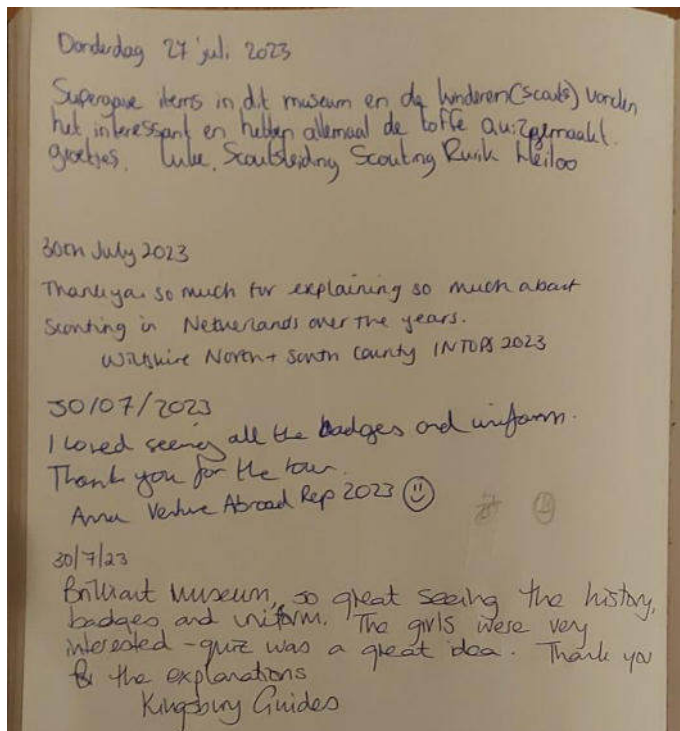 Donderdag 27 juli 2023
Supergave items in dit museum en de kinderen (scouts) vonden
het interessant en hebben allemaal de toffe quiz gemaakt.
groetjes. Luke. Scoutsleiding Scouting Rurik Heiloo
30th July 2023
Thank you so much for explaining so much about
Scouting in Netherlands over the years.
Wiltshire North + South County INTOPS 2023
30/07/2023
I loved seeing all the badges and uniform.
Thank you for the tour.
Anna Venture Abroad Rep 2023
30/7/23
Brilliant Museum, so great seeing the history,
badges and uniform. The girls were very
interested - quiz was a great idea. Thank you
for the explanations
Kingsbury Guides